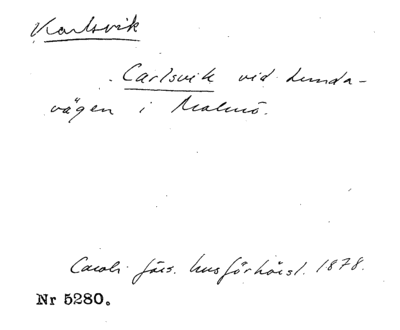 Karlsvik
Carlsvik vid Lunda-
vägen i Malmö.
Caroli förs. husförhörsl. 1878.
Nr 5280.